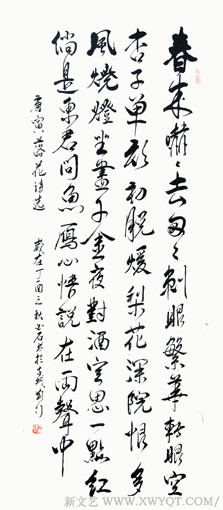 春來嚇々去匆々刺眼繁華轉眼空
杏子单衫初脱煖梨花深院恨多
風燒燈坐盡千金夜對酒空思一點紅
倘是東君問魚雁心情說在雨聲中
唐寅落花诗选 歲在丁酉之秋
新文艺 WWW.XWYQT.COM